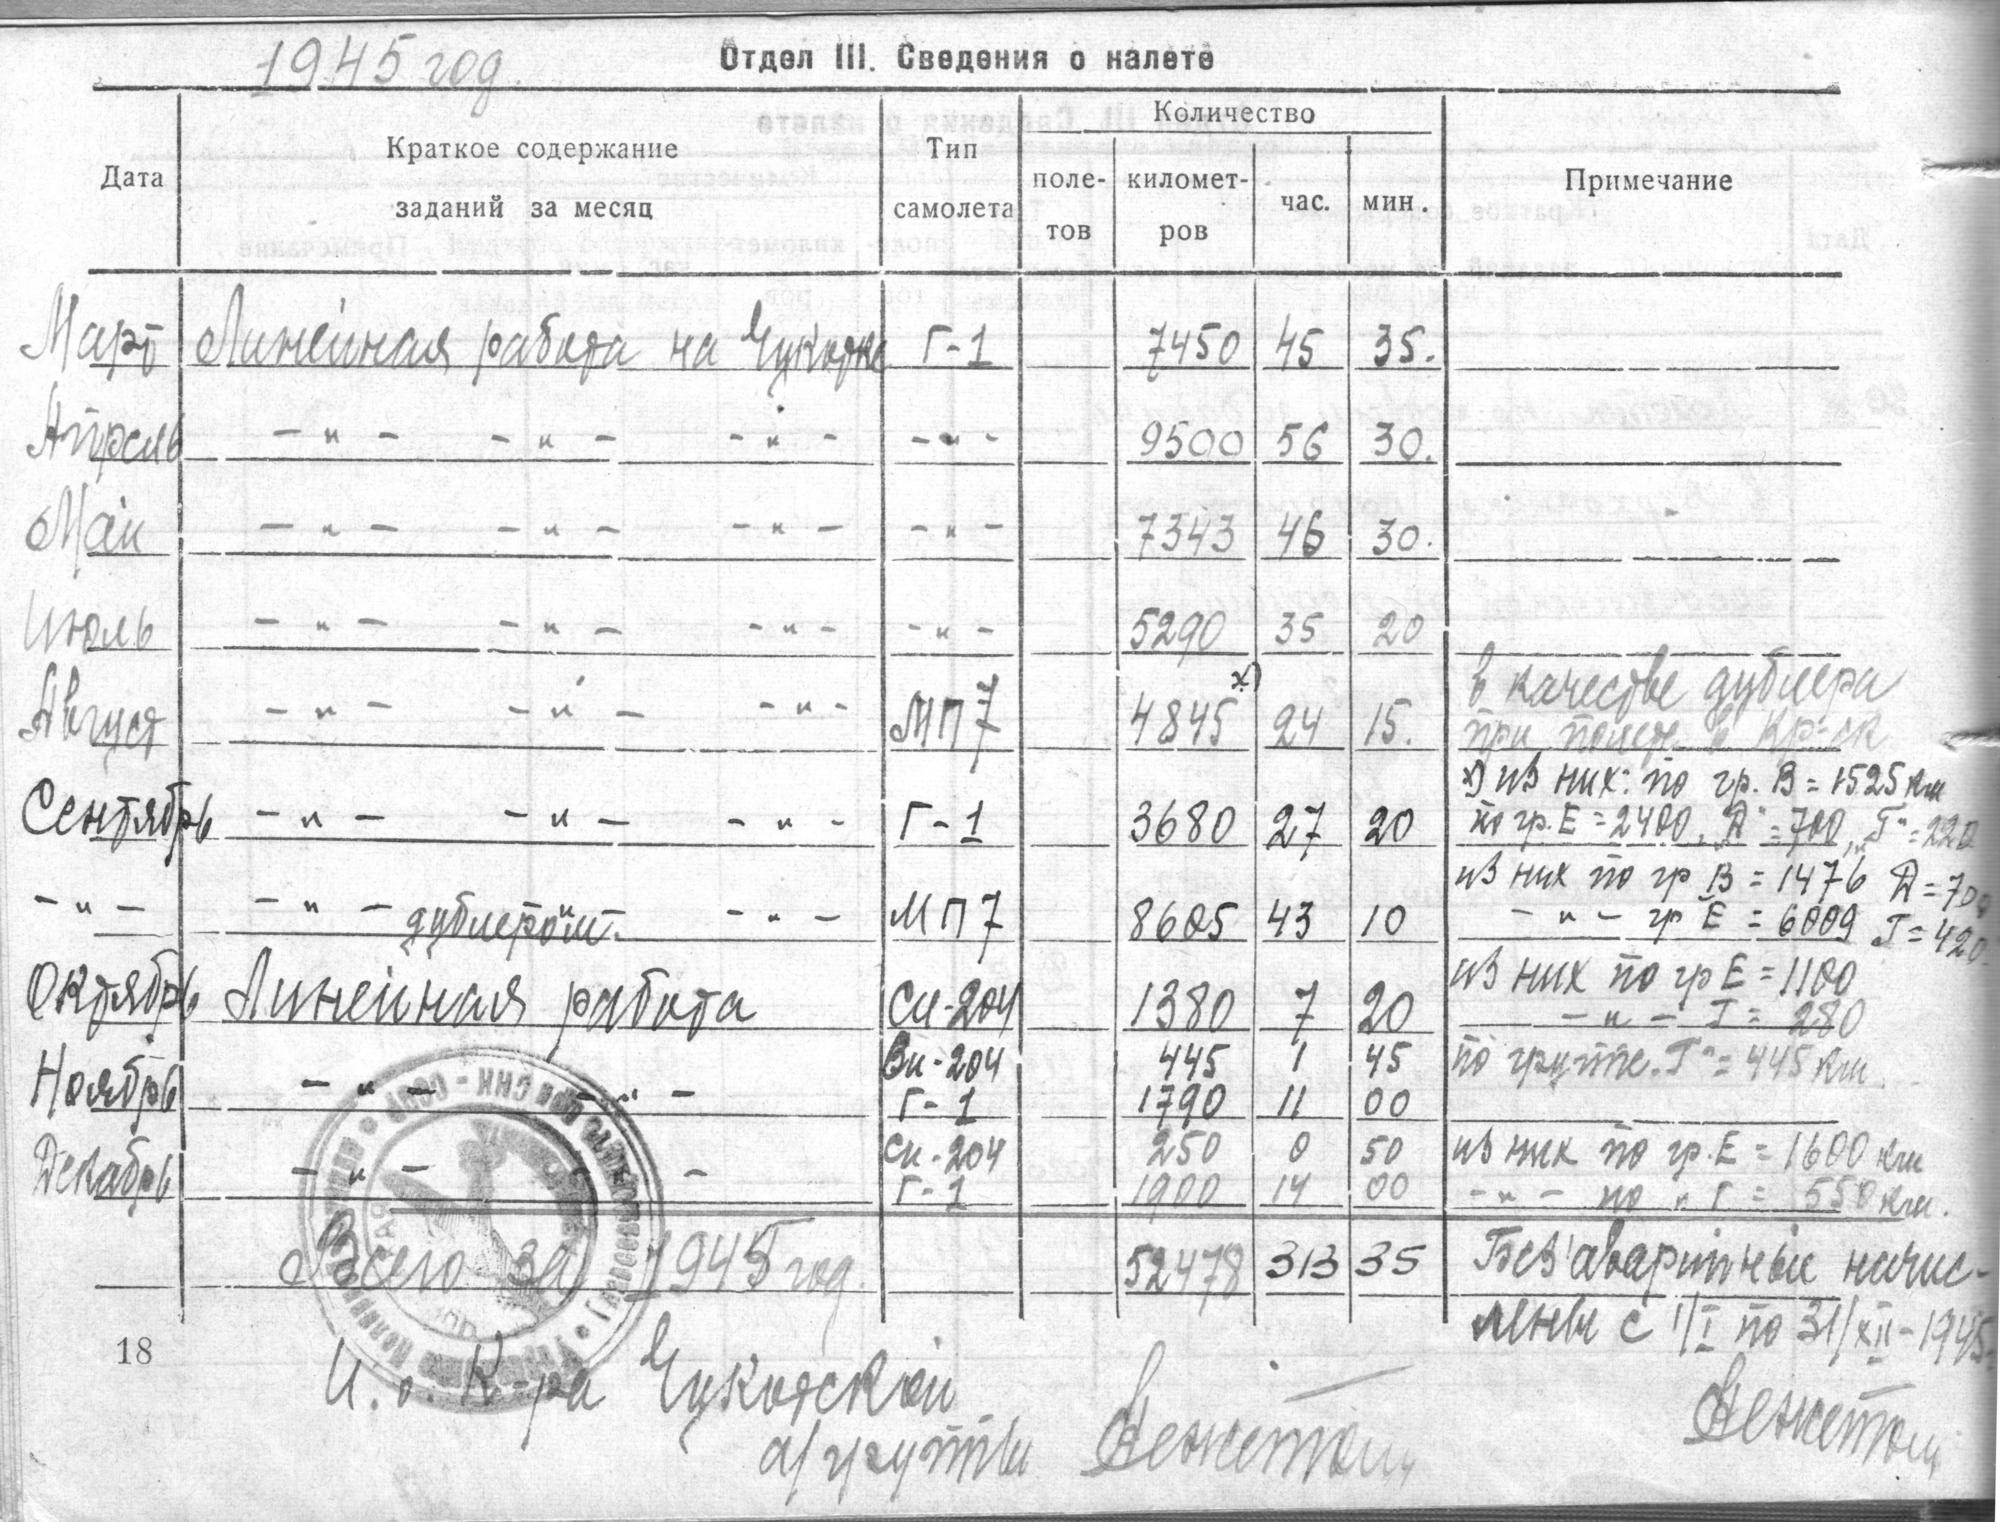 1945 год.
Отдел III. Сведения о налете
Дата
Краткое содержание заданий за месяц
Тип самолета
Количество
поле-
тов
километ-
ров
час.
мин.
Примечание
Март Линейная работа на Чукотке Г-1 7450 45 35.
Апрель -"- -"- -"- -"- 9500 56 30.
Май -"- -"- -"- -"- 7343 46 30.
Июль -"- -"- -"- -"- 5290 35 20
в качестве дублера
Август -"- -"- -"- МП7 4845 х) 24 15. при полет. в Кр-ск
х) из них: по гр. В = 1525 км
Сентябрь -"- -"- -"- Г-1 3680 27 20 по гр. Е = 2400, Д" = 700, Г" = 220
из них по гр В = 1476 Д = 700
-"- -"- дублером. -"- МП7 8605 43 10 -"- гр Е = 6009 Г = 420.
из них по гр Е = 1100
Октябрь Линейная работа Си-204 1380 7 20 -"- Г = 280
Си-204 445 1 45 по группе Г" = 445 км.
Ноябрь -"- -"- Г-1 1790 11 00
Си-204 250 0 50 из них по гр. Е = 1600 км
Декабрь -"- - Г-1 1900 14 00 -"- по " Г = 550 км.
Всего за 1945 год. 52478 313 35 Безаварийные начис-
лены с 1/I по 31/XII-1945.
18
И. о. К-ра Чукотской
а/группы